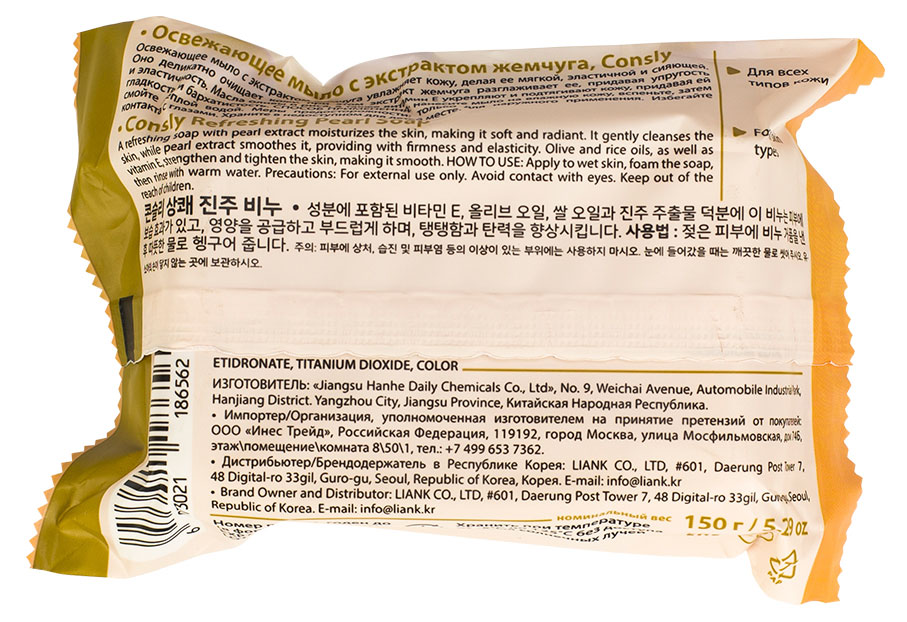 • Освежающее мыло с экстрактом жемчуга, Consly
Освежающее мыло с экстрактом увлажняет кожу, делая ее мягкой, эластичной и сияющей.
Оно деликатно очищает жемчуга разглаживает ее, придавая упругость
и эластичность. Масла Е укрепляют и подтягивают кожу, придавая ей
гладкость и бархатист мыло на влажную кожу, вспеньте, затем
смойте теплой водой. применения. Избегайте
контакта глазами. Хранить месте
• Consly Refreshing Pearl Soap
A refreshing soap with pearl extract moisturizes the skin, making it soft and radiant. It gently cleanses the
skin, while pearl extract smoothes it, providing with firmness and elasticity. Olive and rice oils, as well as
vitamin E, strengthen and tighten the skin, making it smooth. HOW TO USE: Apply to wet skin, foam the soap,
then rinse with warm water. Precautions: For external use only. Avoid contact with eyes. Keep out of the
reach of children.
Для всех
типов кожи
콘슬리 상쾌 진주 비누 • 성분에 포함된 비타민 E, 올리브 오일, 쌀 오일과 진주 추출물 덕분에 이 비누는 피부에
보습 효과가 있고, 영양을 공급하고 부드럽게 하며, 탱탱함과 탄력을 향상시킵니다. 사용법 : 젖은 피부에 비누 거품을 낸
후 따뜻한 물로 헹구어 줍니다. 주의: 피부에 상처, 습진 및 피부염 등의 이상이 있는 부위에는 사용하지 마시오. 눈에 들어갔을 때는 깨끗한 물로 씻어 주시오. 유
닿지 않는 곳에 보관하시오.
ETIDRONATE, TITANIUM DIOXIDE, COLOR
ИЗГОТОВИТЕЛЬ: «Jiangsu Hanhe Daily Chemicals Co., Ltd», No. 9, Weichai Avenue, Automobile Industrial Park,
Hanjiang District. Yangzhou City, Jiangsu Province, Китайская Народная Республика.
• Импортер/Организация, уполномоченная изготовителем на принятие претензий от покупателей:
ООО «Инес Трейд», Российская Федерация, 119192, город Москва, улица Мосфильмовская, дом 74Б,
этаж\помещение\комната 8\50\1, тел.: +7 499 653 7362.
• Дистрибьютер/Брендодержатель в Республике Корея: LIANK CO., LTD, #601, Daerung Post Tower 7,
48 Digital-ro 33gil, Guro-gu, Seoul, Republic of Korea, Корея. E-mail: info@liank.kr
• Brand Owner and Distributor: LIANK CO., LTD, #601, Daerung Post Tower 7, 48 Digital-ro 33gil, Guro-gu, Seoul,
Republic of Korea. E-mail: info@liank.kr
номинальный вес 150 г / 5.29 oz
Номер годен до
Хранить при температуре
лучей
186562